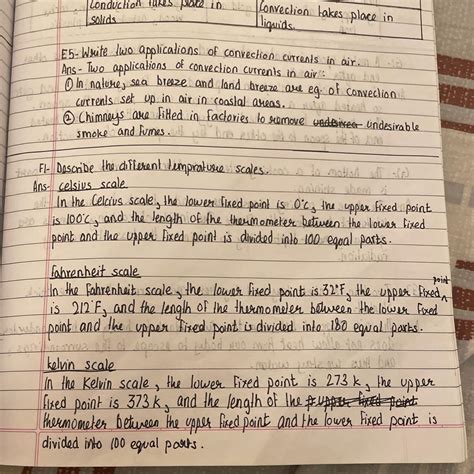 Conduction takes place in
solids.
Convection takes place in
liquids.
E5- Write two applications of convection currents in air.
Ans - Two applications of convection currents in air :
① In nature, sea breeze and land breeze are eg. of convection
currents set up in air in coastal areas.
② Chimneys are fitted in factories to remove undesirable
smoke and fumes.
F1- Describe the different temprature scales.
Ans- celsius scale
In the Celcius scale, the lower fixed point is 0°c, the upper fixed point
is 100°c, and the length of the thermometer between the lower fixed
point and the upper fixed point is divided into 100 equal parts.
fahrenheit scale
In the fahrenheit scale, the lower fixed point is 32°F, the upper fixed point
is 212°F, and the length of the thermometer between the lower fixed
point and the upper fixed point is divided into 180 equal parts.
kelvin scale
In the Kelvin scale, the lower fixed point is 273 k, the upper
fixed point is 373 k, and the length of the upper fixed point
thermometer between the upper fixed point and the lower fixed point is
divided into 100 equal parts.